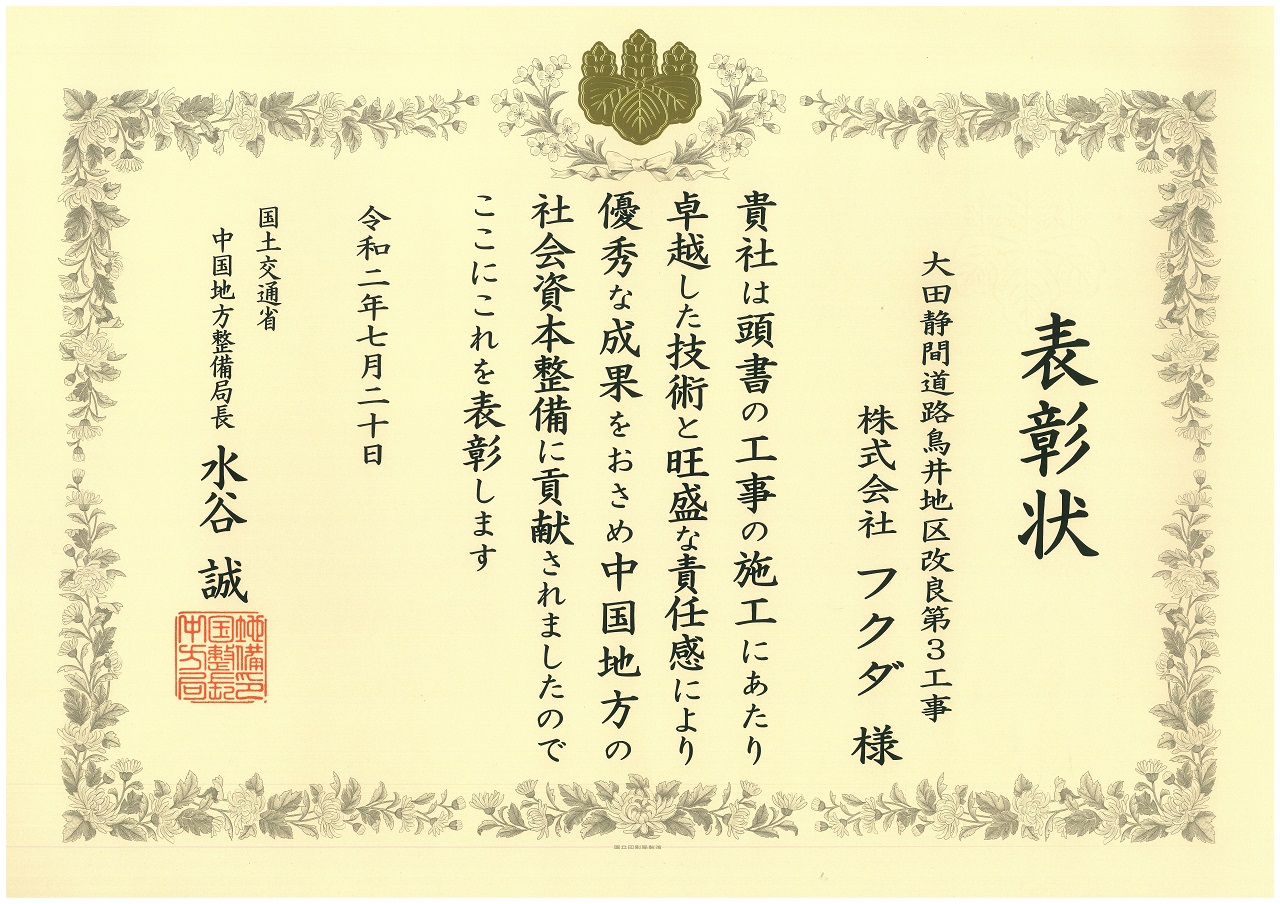 表彰状
大田静間道路鳥井地区改良第3工事
株式会社 フクダ 様
貴社は頭書の工事の施工にあたり
卓越した技術と旺盛な責任感により
優秀な成果をおさめ中国地方の
社会資本整備に貢献されましたので
ここにこれを表彰します
令和二年七月二十日
国土交通省
中国地方整備局長 水谷 誠